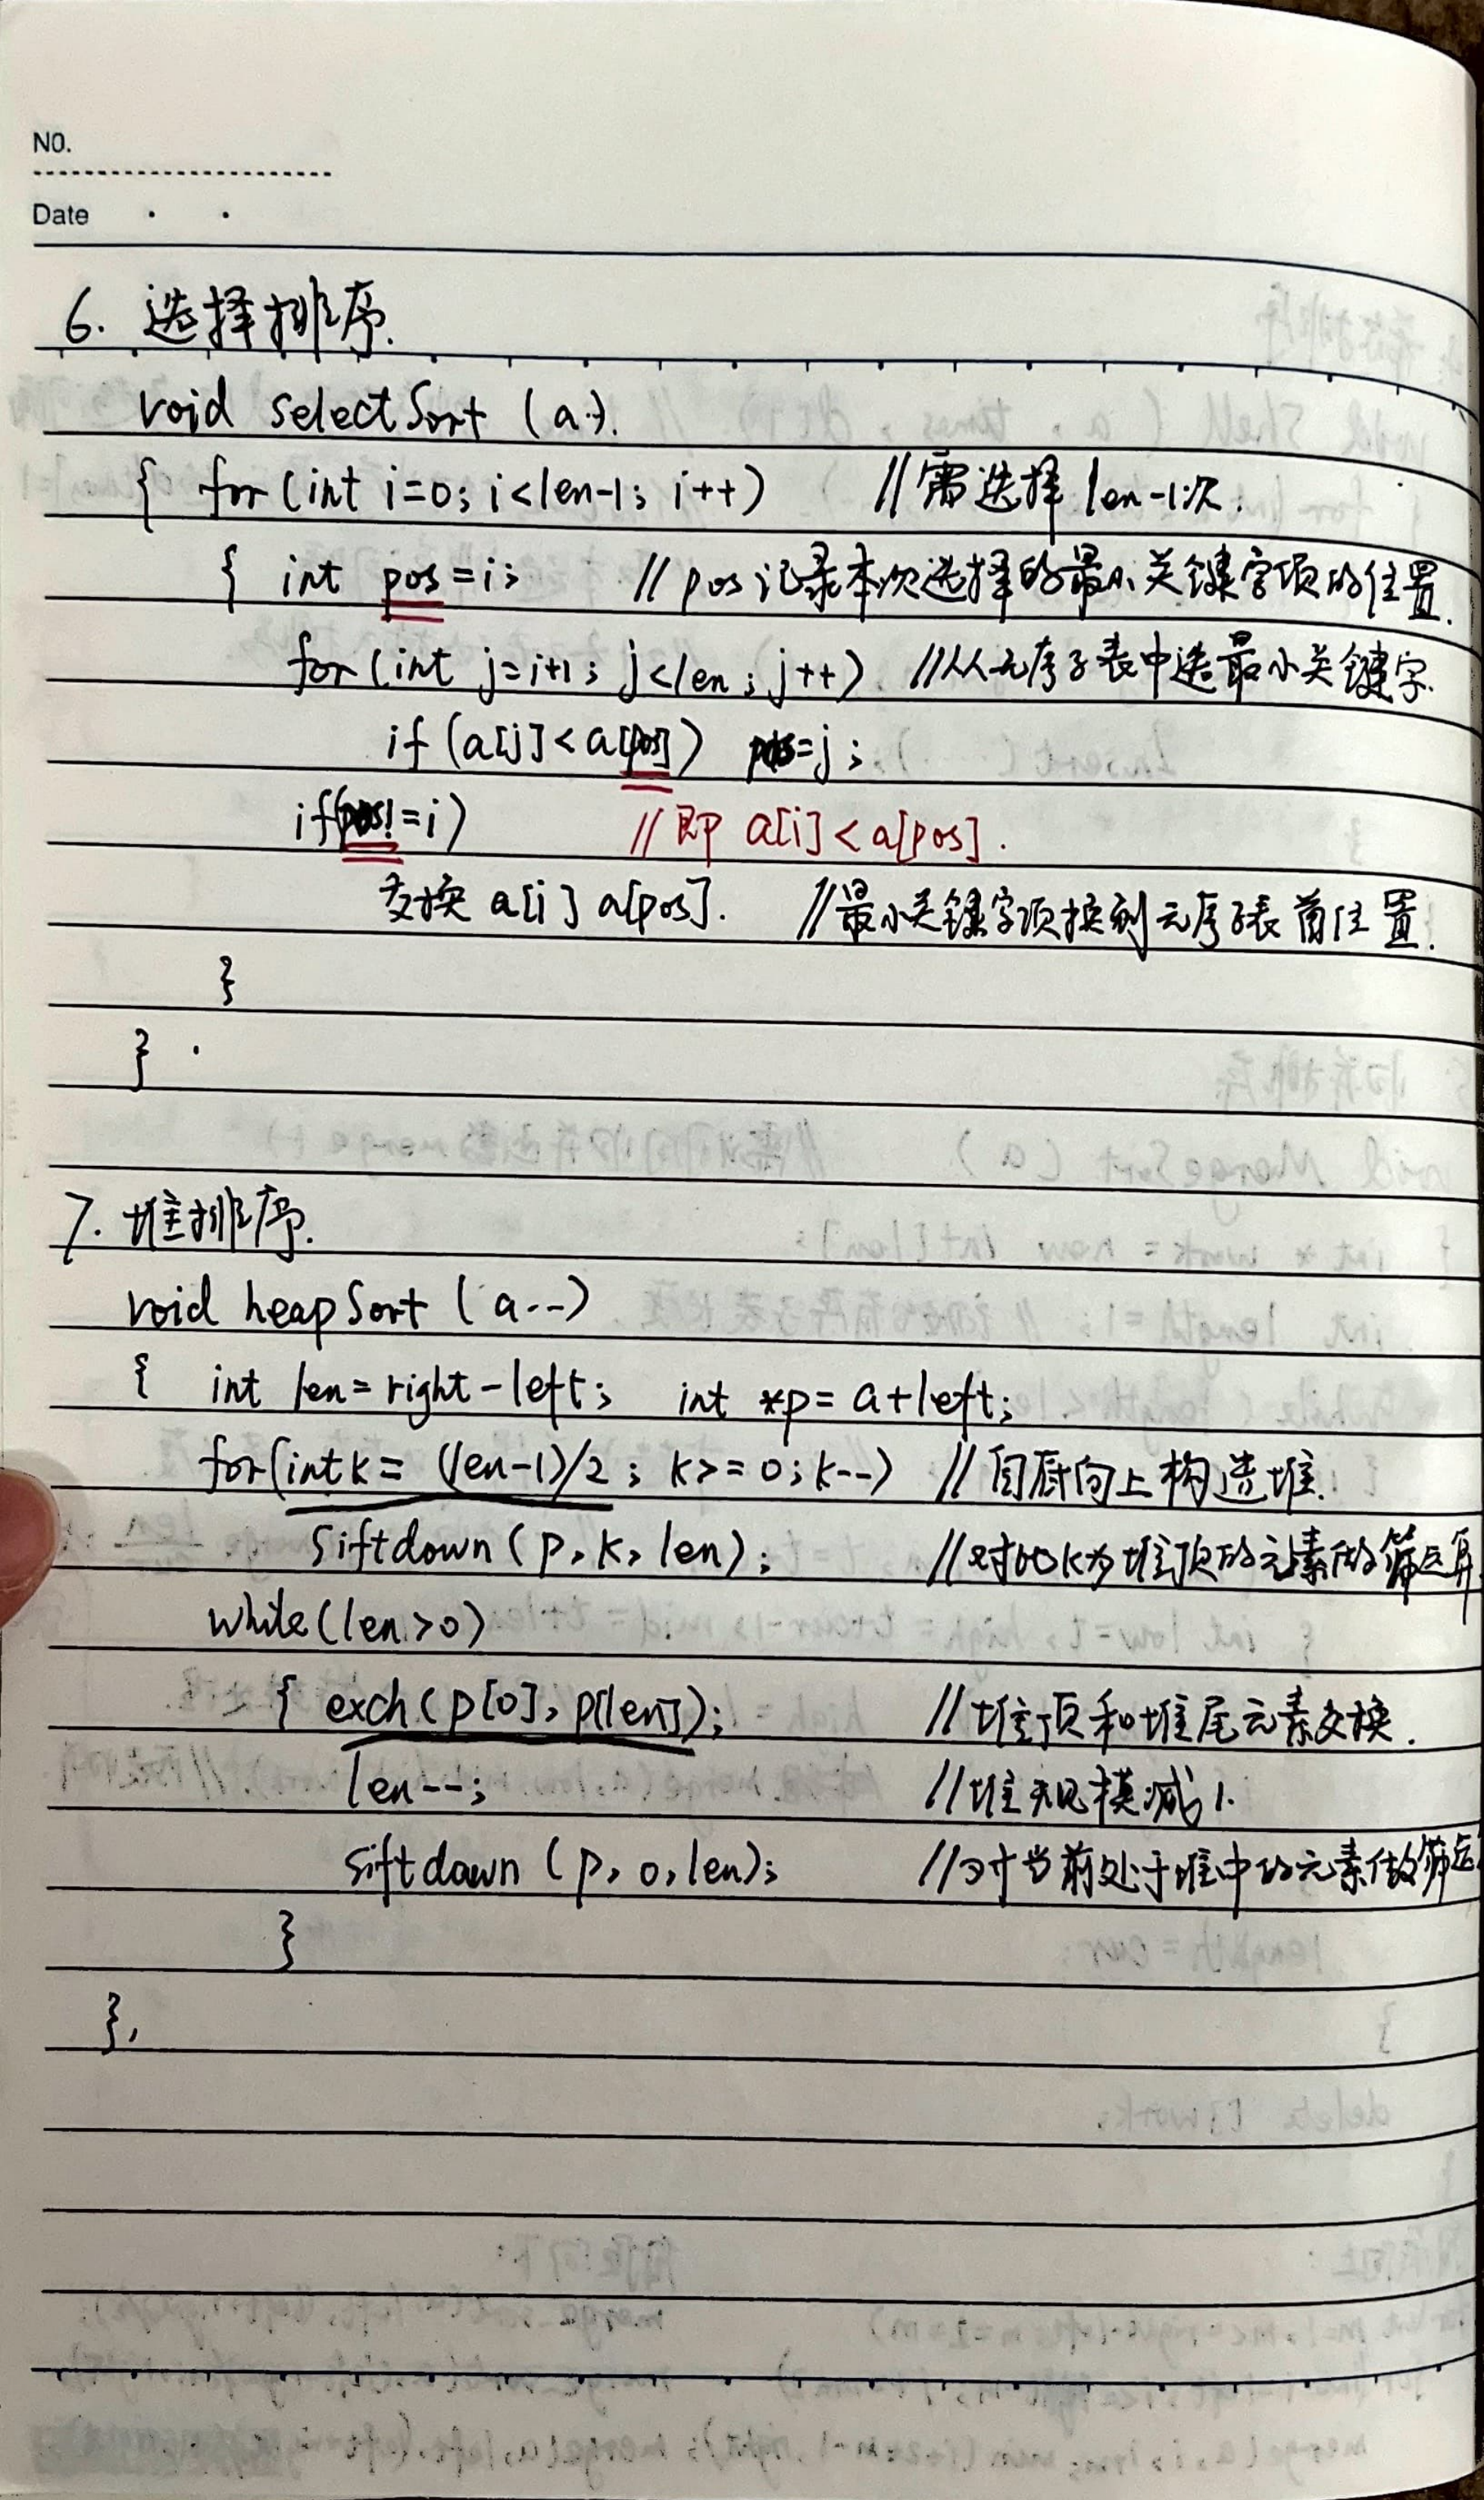 NO.
Date
6. 选择排序.
void selectSort (a..).
{ for (int i=0; i<len-1; i++) //需选择 len-1次.
{ int pos=i; // pos记录本次选择的最小关键字项的位置.
for (int j=i+1; j<len; j++) //从无序子表中选最小关键字.
if (a[j]<a[pos]) pos=j;
if(pos!=i) //即 a[i]<a[pos].
交换 a[i] a[pos]. //最小关键字项换到无序子表首位置.
}
}
7. 堆排序.
void heapSort (a--)
{ int len=right-left; int *p=a+left;
for(int k= (len-1)/2; k>=0; k--) //自底向上构造堆.
siftdown (p, k, len); //对以k为堆顶的元素做筛运算
while(len>0)
{ exch(p[0], p[len]); //堆顶和堆尾元素交换.
len--; //堆规模减1.
siftdown (p, 0, len); //对当前处于堆中的元素做筛运
}
}.